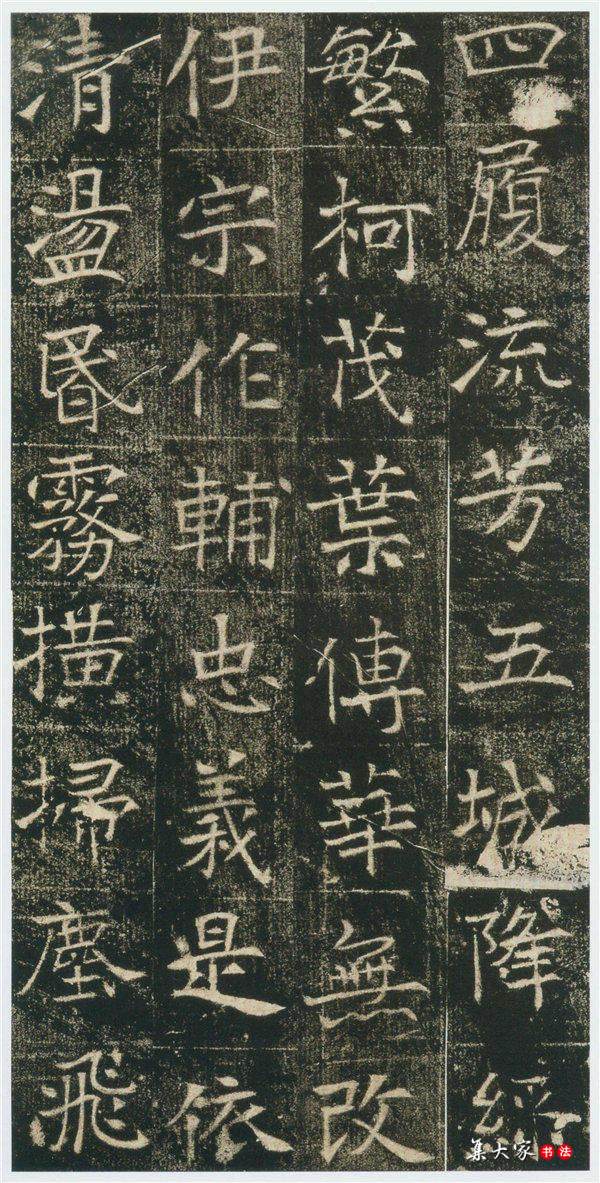 四履流芳五城降
繁柯茂葉傳華無改
伊宗作輔忠義是依
清盪昬霧撗掃塵飛
集大家书法